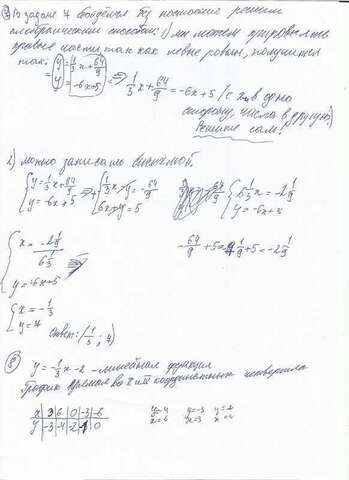 В задаче 7 обойдёмся без построения решим
алгебраическим способом: 1) мы можем приравнять
правые части, так как левые равны, получится
так: = { y = 1/3 x + 64/9 y = -6x+5 } => 1/3 x + 64/9 = -6x+5 /с x в одно
сторону, числа в другую)
Решите сам!
2) можно записать системой
{ y = 1/3 x + 64/9 y = -6x+5
{ 1/3 x - y = -64/9 6x+y = 5
{ 6 1/3 x = -2 1/9 y = -6x+5
{ x = -2 1/9 / 6 1/3 y = -6x+5
-64/9 + 5 = -7 1/9 + 5 = -2 1/9
{ x = -1/3 y = 7
Ответ: (-1/3; 7)
8) y = -1/3 x - 2 - линейная функция
График
координатных четвертях
x 3 6 0 -3 -6
y -3 -4 -2 -1 0
y=-4 y=-3
x=6 x=3